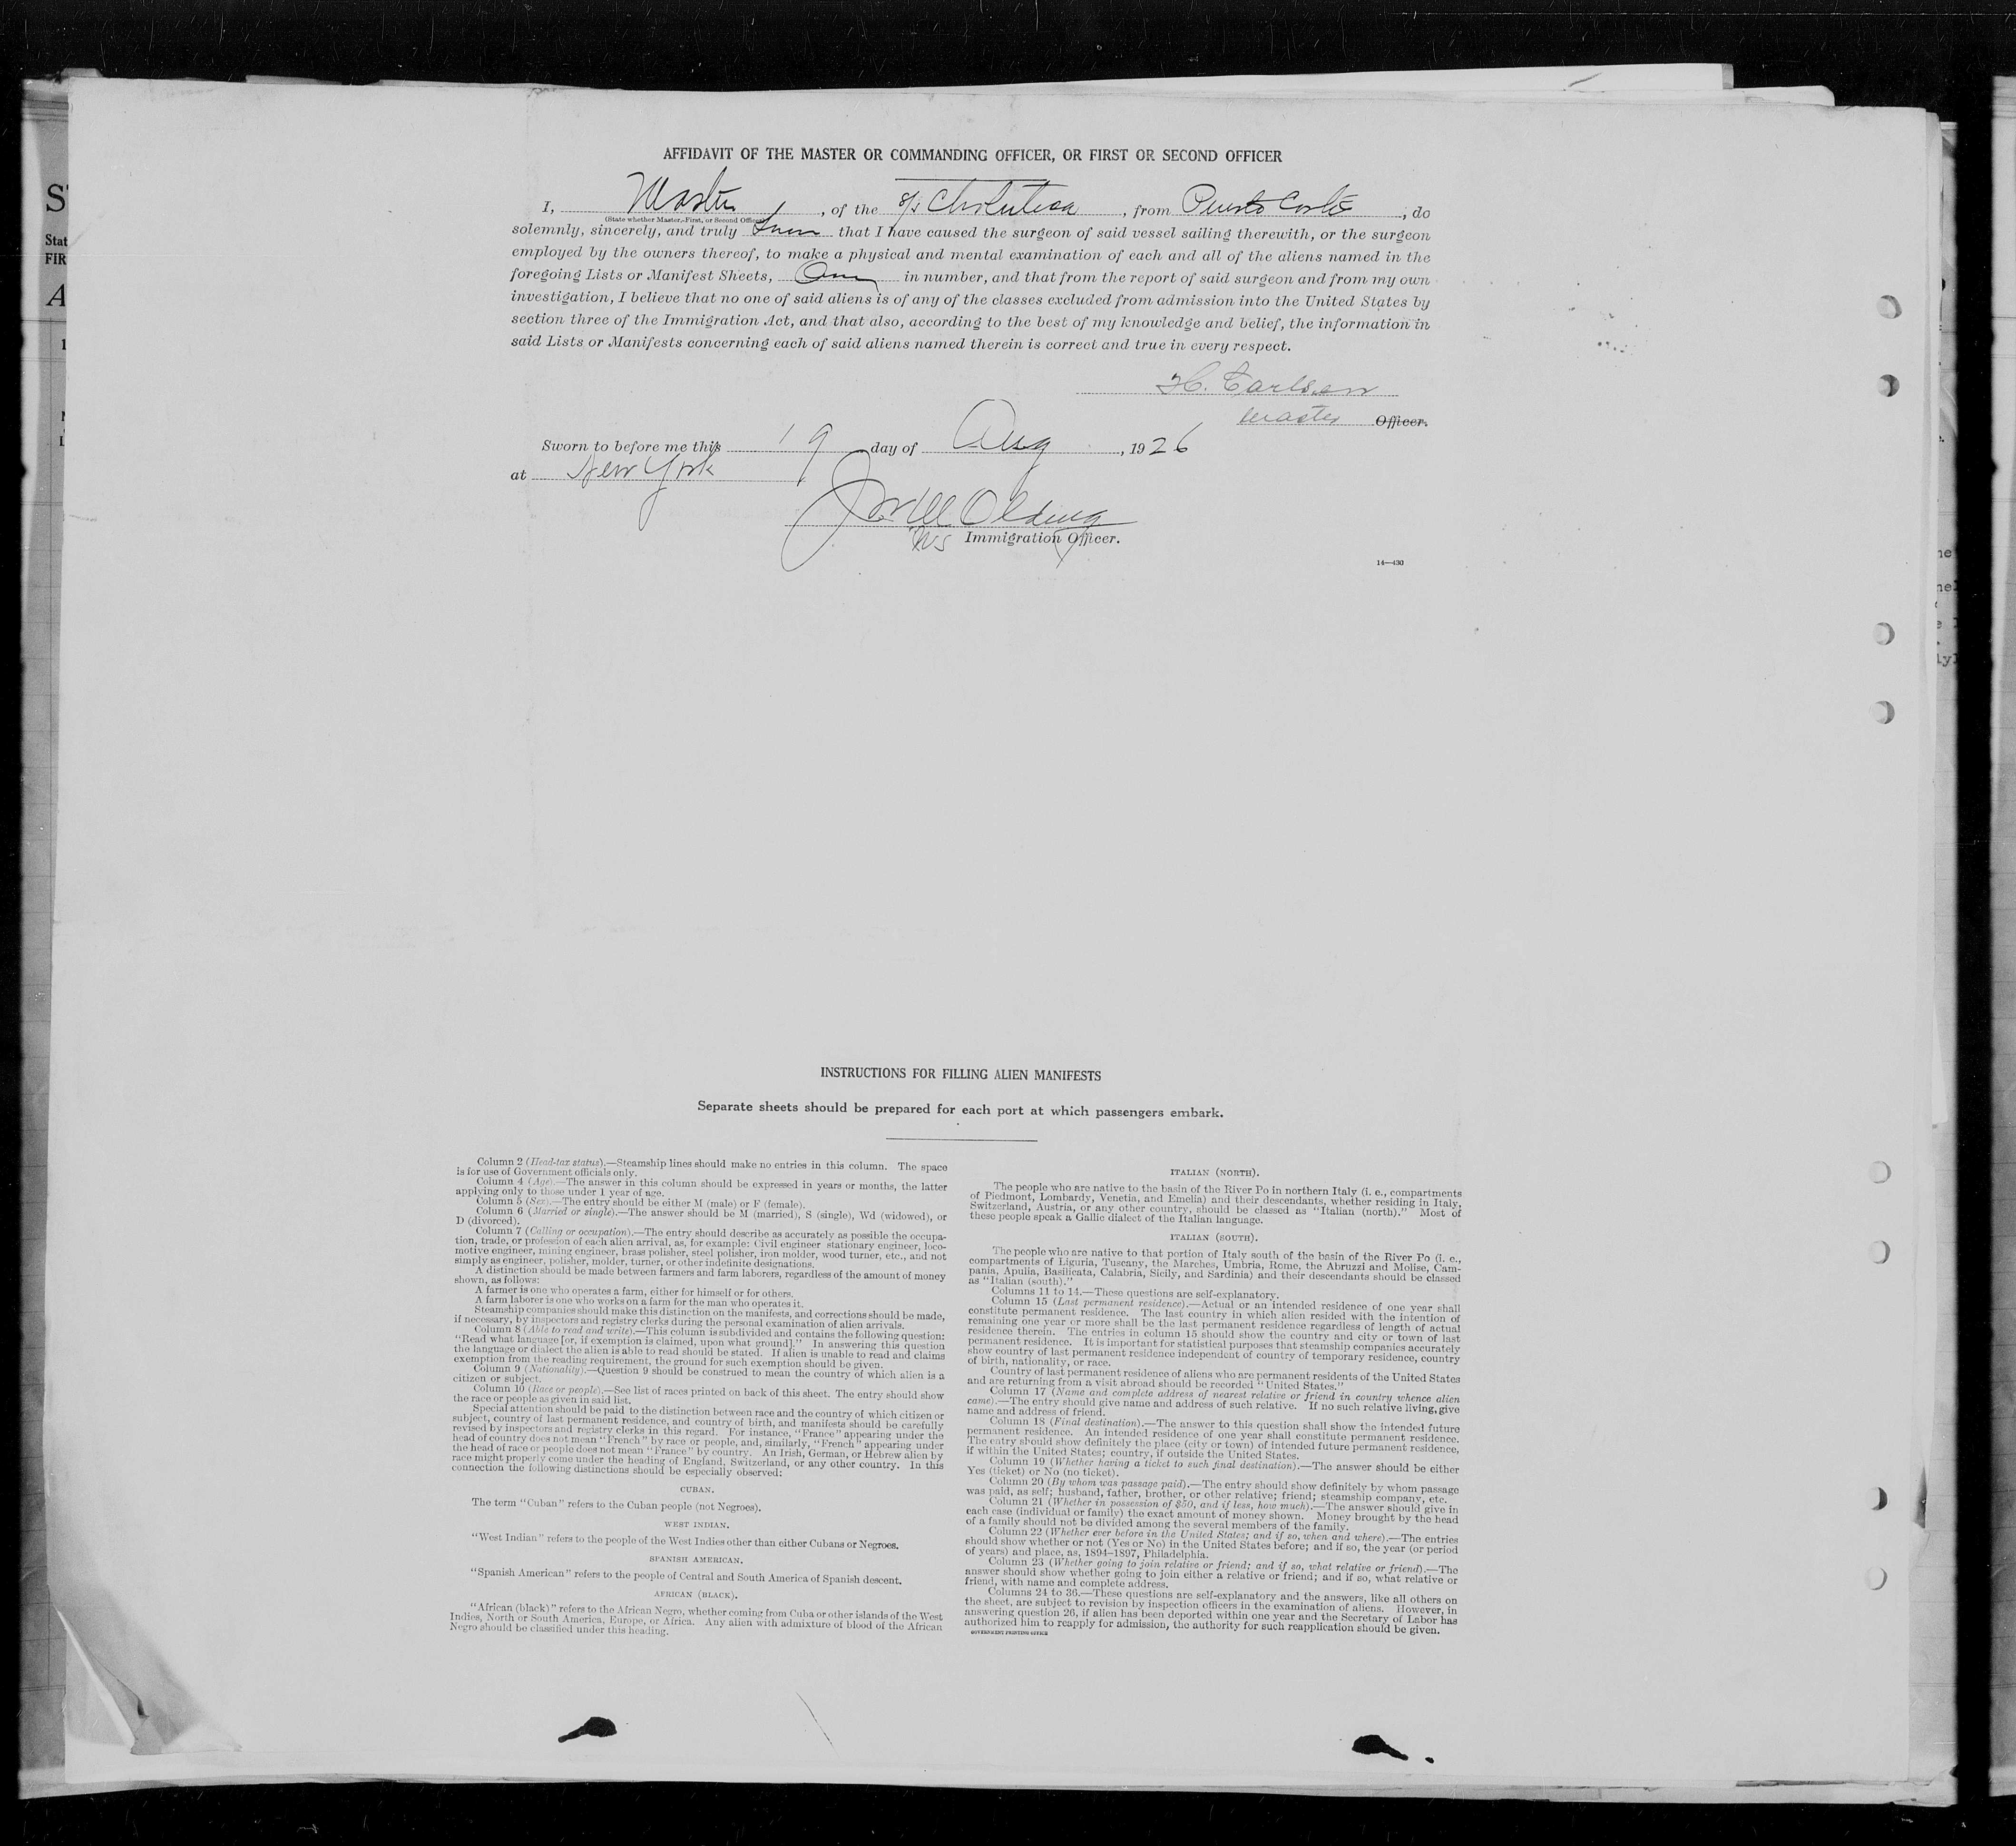 AFFIDAVIT OF THE MASTER OR COMMANDING OFFICER, OR FIRST OR SECOND OFFICER
I, Master, of the S/S Choluteca, from Puerto Cortés, do
(State whether Master, First, or Second Officer)
solemnly, sincerely, and truly Swear that I have caused the surgeon of said vessel sailing therewith, or the surgeon
employed by the owners thereof, to make a physical and mental examination of each and all of the aliens named in the
foregoing Lists or Manifest Sheets, One in number, and that from the report of said surgeon and from my own
investigation, I believe that no one of said aliens is of any of the classes excluded from admission into the United States by
section three of the Immigration Act, and that also, according to the best of my knowledge and belief, the information in
said Lists or Manifests concerning each of said aliens named therein is correct and true in every respect.
H. Carlsen
Master Officer.
Sworn to before me this 19 day of Aug, 1926
at New York
Olding
Immigration Officer.
14—430
INSTRUCTIONS FOR FILLING ALIEN MANIFESTS
Separate sheets should be prepared for each port at which passengers embark.
Column 2 (Head-tax status).—Steamship lines should make no entries in this column. The space
is for use of Government officials only.
Column 4 (Age).—The answer in this column should be expressed in years or months, the latter
applying only to those under 1 year of age.
Column 5 (Sex).—The entry should be either M (male) or F (female).
Column 6 (Married or single).—The answer should be M (married), S (single), Wd (widowed), or
D (divorced).
Column 7 (Calling or occupation).—The entry should describe as accurately as possible the occupa-
tion, trade, or profession of each alien arrival, as, for example: Civil engineer stationary engineer, loco-
motive engineer, mining engineer, brass polisher, steel polisher, iron molder, wood turner, etc., and not
simply as engineer, polisher, molder, turner, or other indefinite designations.
A distinction should be made between farmers and farm laborers, regardless of the amount of money
shown, as follows:
A farmer is one who operates a farm, either for himself or for others.
A farm laborer is one who works on a farm for the man who operates it.
Steamship companies should make this distinction on the manifests, and corrections should be made,
if necessary, by inspectors and registry clerks during the personal examination of alien arrivals.
Column 8 (Able to read and write).—This column is subdivided and contains the following question:
“Read what language [or, if exemption is claimed, upon what ground].” In answering this question
the language or dialect the alien is able to read should be stated. If alien is unable to read and claims
exemption from the reading requirement, the ground for such exemption should be given.
Column 9 (Nationality).—Question 9 should be construed to mean the country of which alien is a
citizen or subject.
Column 10 (Race or people).—See list of races printed on back of this sheet. The entry should show
the race or people as given in said list.
Special attention should be paid to the distinction between race and the country of which citizen or
subject, country of last permanent residence, and country of birth, and manifests should be carefully
revised by inspectors and registry clerks in this regard. For instance, “France” appearing under the
head of country does not mean “French” by race or people, and, similarly, “French” appearing under
the head of race or people does not mean “France” by country. An Irish, German, or Hebrew alien by
race might properly come under the heading of England, Switzerland, or any other country. In this
connection the following distinctions should be especially observed:
CUBAN.
The term “Cuban” refers to the Cuban people (not Negroes).
WEST INDIAN.
“West Indian” refers to the people of the West Indies other than either Cubans or Negroes.
SPANISH AMERICAN.
“Spanish American” refers to the people of Central and South America of Spanish descent.
AFRICAN (BLACK).
“African (black)” refers to the African Negro, whether coming from Cuba or other islands of the West
Indies, North or South America, Europe, or Africa. Any alien with admixture of blood of the African
Negro should be classified under this heading.
ITALIAN (NORTH).
The people who are native to the basin of the River Po in northern Italy (i. e., compartments
of Piedmont, Lombardy, Venetia, and Emelia) and their descendants, whether residing in Italy,
Switzerland, Austria, or any other country, should be classed as “Italian (north).” Most of
these people speak a Gallic dialect of the Italian language.
ITALIAN (SOUTH).
The people who are native to that portion of Italy south of the basin of the River Po (i. e.,
compartments of Liguria, Tuscany, the Marches, Umbria, Rome, the Abruzzi and Molise, Cam-
pania, Apulia, Basilicata, Calabria, Sicily, and Sardinia) and their descendants should be classed
as “Italian (south).”
Columns 11 to 14.—These questions are self-explanatory.
Column 15 (Last permanent residence).—Actual or an intended residence of one year shall
constitute permanent residence. The last country in which alien resided with the intention of
remaining one year or more shall be the last permanent residence regardless of length of actual
residence therein. The entries in column 15 should show the country and city or town of last
permanent residence. It is important for statistical purposes that steamship companies accurately
show country of last permanent residence independent of country of temporary residence, country
of birth, nationality, or race.
Country of last permanent residence of aliens who are permanent residents of the United States
and are returning from a visit abroad should be recorded “United States.”
Column 17 (Name and complete address of nearest relative or friend in country whence alien
came).—The entry should give name and address of such relative. If no such relative living, give
name and address of friend.
Column 18 (Final destination).—The answer to this question shall show the intended future
permanent residence. An intended residence of one year shall constitute permanent residence.
The entry should show definitely the place (city or town) of intended future permanent residence,
if within the United States; country, if outside the United States.
Column 19 (Whether having a ticket to such final destination).—The answer should be either
Yes (ticket) or No (no ticket).
Column 20 (By whom was passage paid).—The entry should show definitely by whom passage
was paid, as self; husband, father, brother, or other relative; friend; steamship company, etc.
Column 21 (Whether in possession of $50, and if less, how much).—The answer should give in
each case (individual or family) the exact amount of money shown. Money brought by the head
of a family should not be divided among the several members of the family.
Column 22 (Whether ever before in the United States; and if so, when and where).—The entries
should show whether or not (Yes or No) in the United States before; and if so, the year (or period
of years) and place, as, 1894–1897, Philadelphia.
Column 23 (Whether going to join relative or friend; and if so, what relative or friend).—The
answer should show whether going to join either a relative or friend; and if so, what relative or
friend, with name and complete address.
Columns 24 to 36.—These questions are self-explanatory and the answers, like all others on
the sheet, are subject to revision by inspection officers in the examination of aliens. However, in
answering question 26, if alien has been deported within one year and the Secretary of Labor has
authorized him to reapply for admission, the authority for such reapplication should be given.
GOVERNMENT PRINTING OFFICE